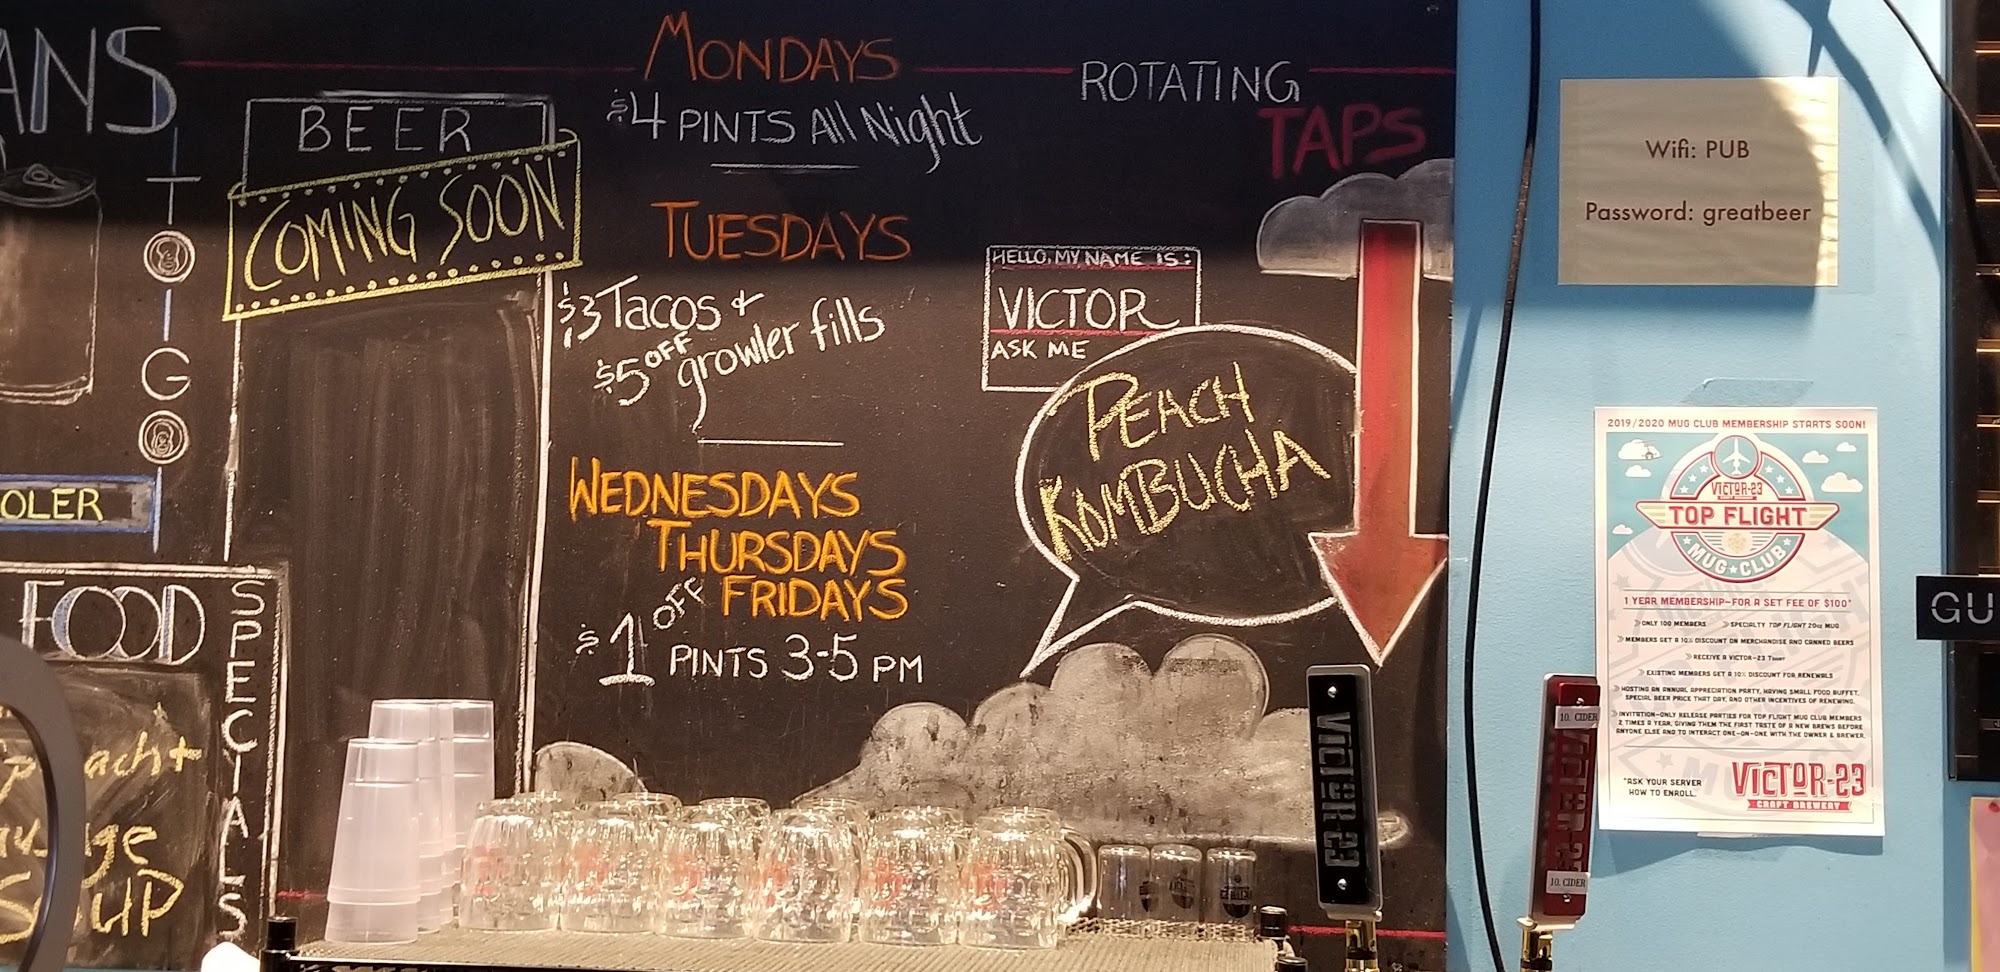 ANS
T
O
G
O
OLER
BEER
COMING SOON
FOOD
SPECIALS
SOUP
MONDAYS
$4 PINTS All Night
TUESDAYS
$3 Tacos +
$5 OFF growler fills
WEDNESDAYS
THURSDAYS
FRIDAYS
$1 OFF
PINTS 3-5 PM
ROTATING
TAPS
HELLO, MY NAME IS:
VICTOR
ASK ME
PEACH
KOMBUCHA
VICTOR-23
10. CIDER
VICTOR-23
10. CIDER
Wifi: PUB
Password: greatbeer
2019/2020 MUG CLUB MEMBERSHIP STARTS SOON!
VICTOR-23
CRAFT BREWERY
TOP FLIGHT
MUG CLUB
1 YEAR MEMBERSHIP-FOR A SET FEE OF $100*
ONLY 100 MEMBERS SPECIALTY TOP FLIGHT 20oz MUG
MEMBERS GET A 10% DISCOUNT ON MERCHANDISE AND CANNED BEERS
RECEIVE A VICTOR-23 TSHIRT
EXISTING MEMBERS GET A 10% DISCOUNT FOR RENEWALS
HOSTING AN ANNUAL APPRECIATION PARTY, HAVING SMALL FOOD BUFFET,
SPECIAL BEER PRICE THAT DAY, AND OTHER INCENTIVES OF RENEWING.
INVITATION-ONLY RELEASE PARTIES FOR TOP FLIGHT MUG CLUB MEMBERS
2 TIMES A YEAR, GIVING THEM THE FIRST TASTE OF A NEW BREWS BEFORE
ANYONE ELSE AND TO INTERACT ONE-ON-ONE WITH THE OWNER & BREWER.
*ASK YOUR SERVER
HOW TO ENROLL.
VICTOR-23
CRAFT BREWERY
GU